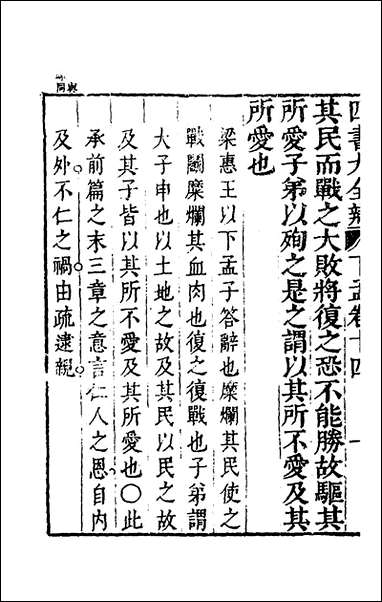 四書大全辯 下孟卷十四 一
其民而戰之大敗將復之恐不能勝故驅其
所愛子弟以殉之是之謂以其所不愛及其
所愛也
梁惠王以下孟子答辭也糜爛其民使之
戰鬬糜爛其血肉也復之復戰也子弟謂
大子申也以土地之故及其民以民之故
及其子皆以其所不愛及其所愛也○此
承前篇之末三章之意言仁人之恩自内
及外不仁之禍由疏逮親